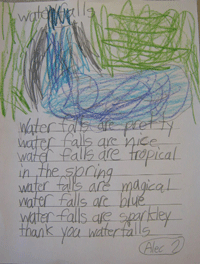 waterfalls
water falls are pretty
water falls are nice
water falls are tropical
in the spring
water falls are magical
water falls are blue
water falls are sparkley
thank you waterfalls
Alec